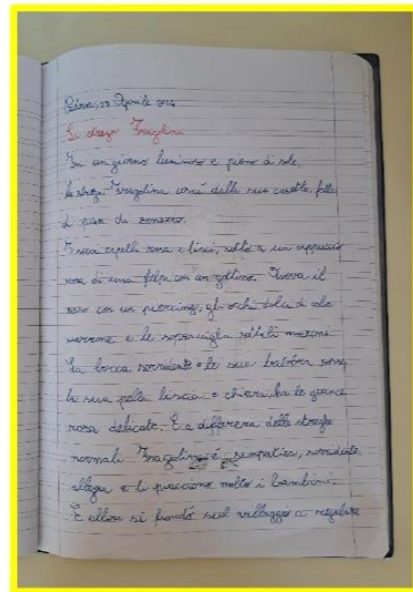 Padova, 23 Aprile 2024
La strega Fragolina
In un giorno luminoso e pieno di sole,
la strega Fragolina uscì dalla sua casetta, fatta
di pan da zenzero.
I suoi capelli rosa e lisci, sotto a un cappuccio
rosa di una felpa con un gattino. Aveva il
naso con un piercing, gli occhi dolci di color
marrone e le sopracciglia sottili marroni.
La bocca sorridente e le sue labbra rosse,
la sua pelle liscia e chiara, ha le guance
rosa delicate. E a differenza delle streghe
normali Fragolina è simpatica, sorridente,
allegra e li piacciono molto i bambini.
E allora si fiondò sul villaggio a regalare